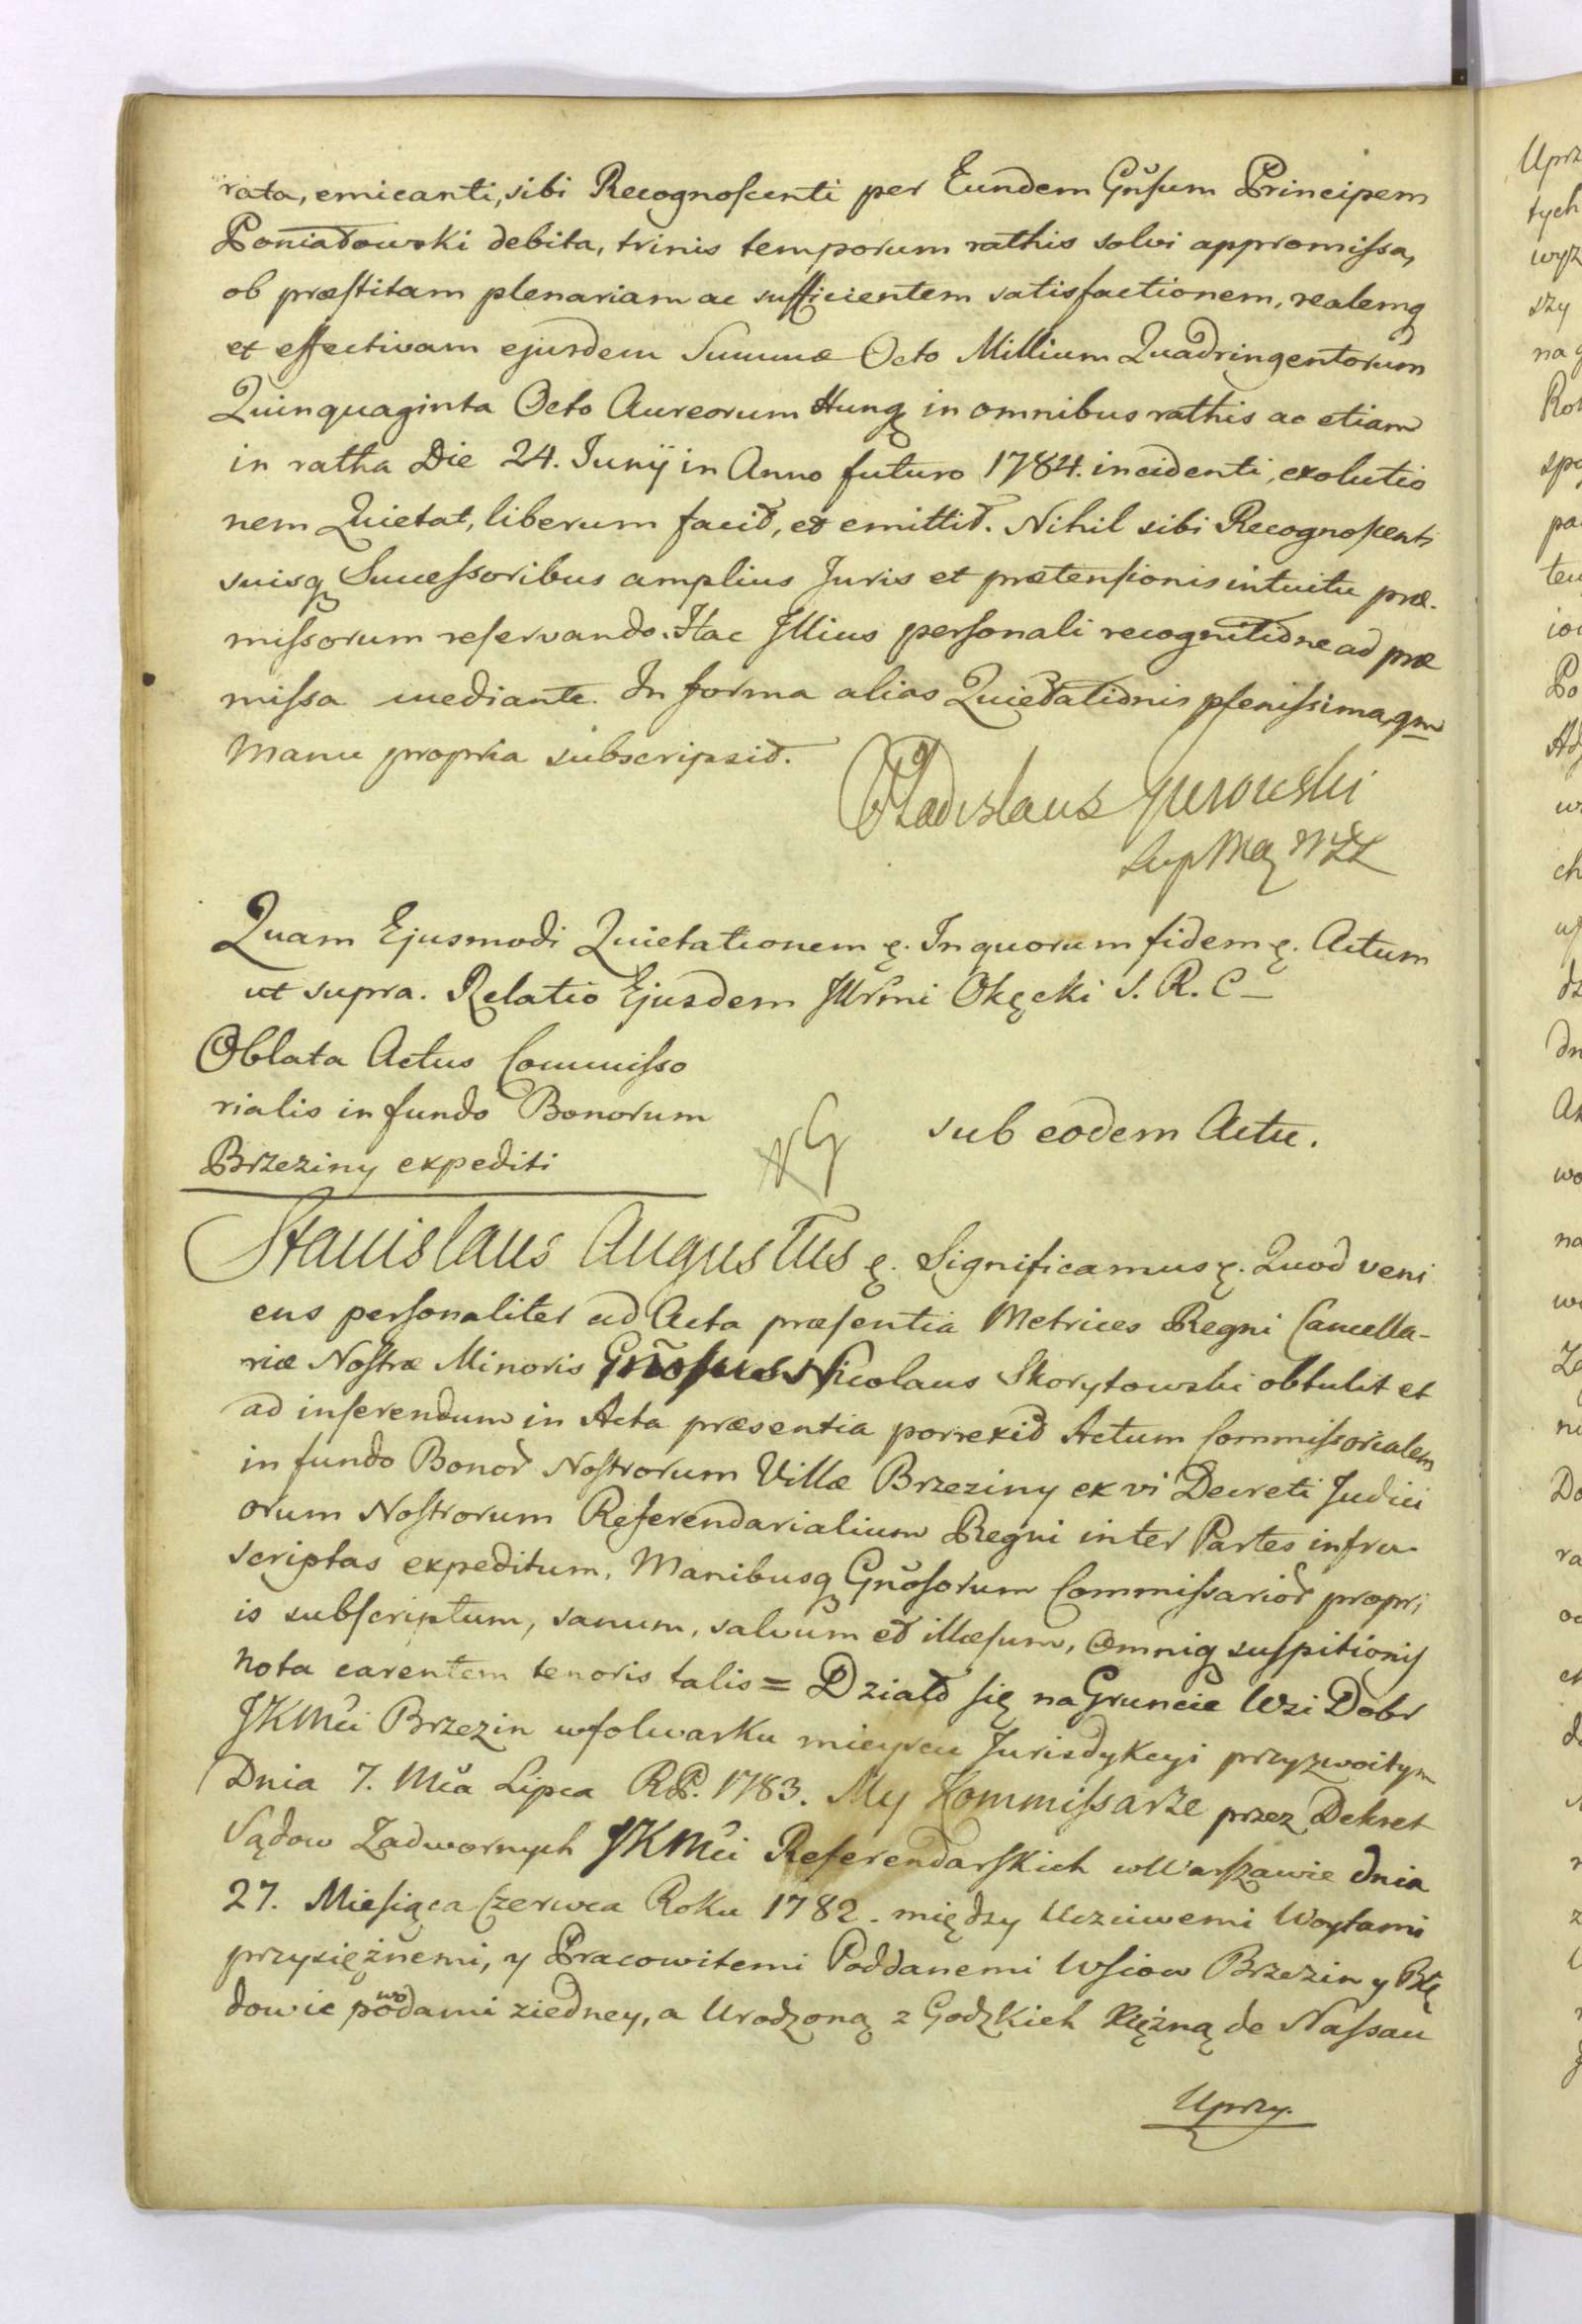 rata, emicanti, sibi Recognoscenti per Eundem Gnsum Principem
Poniatowski debita, trinis temporum rathis solvi appromissa,
ob præstitam plenariam ac sufficientem satisfactionem, realemq
et effectivam ejusdem Summæ Octo Millium Quadringentorum
Quinquaginta Octo Aureorum Hung in omnibus rathis ac etiam
in ratha Die 24. Junÿ in Anno futuro 1784. incidenti, exolutio
nem Quietat, liberum facit, et emittit. Nihil sibi Recognoscenti
suisq Successoribus amplius Juris et prætensionis intuitu præ.
missorum reservando. Hac Illius personali recognitione ad præ
missa mediante. In forma alias Quietationis plenissima, qm
Manu propria subscripsit.
Władislaus Gurowski
Sup Mar WXL
Quam Ejusmodi Quietationem ę. In quorum fidem ę. Actum
ut supra. Relatio Ejusdem Illrmi Okęcki S. R. C
Oblata Actus Commisso
rialis in fundo Bonorum
Brzeziny expediti
sub eodem Actu.
Stanislaus Augustus ę. Significamus ę. Quod veni
ens personaliter ad Acta præsentia Metrices Regni Cancella-
riæ Nostræ Minoris Gnosus Nicolaus Skorytowski obtulit et
ad inserendum in Acta præsentia porrexit Actum Commissorialem
in fundo Bonor Nostrorum Villæ Brzeziny ex vi Decreti Judici
orum Nostrorum Referendarialium Regni inter Partes infra
scriptas expeditum, Manibusq Gnosorum Commissarior propri
is subscriptum, sanum, salvum et illæsum, omniq suspitionis
nota carentem tenoris talis = Działo się na Gruncie Wsi Dobr
JKMci Brzezin w folwarku mieyscu Jurisdykcyi przyzwoitym
Dnia 7. Mca Lipca RP. 1783. My Kommissarze przez Dekret
Sądow Zadwornych JKMci Referendarskich w Warszawie dnia
27. Miesiąca Czerwca Roku 1782. między Uczciwemi Woytami
przysiężnemi, y Pracowitemi Poddanemi Wsiow Brzezin y Błę
dowie powodami ziedney, a Urodzoną z Godzkich Xiężną de Nassau
Uprzy.